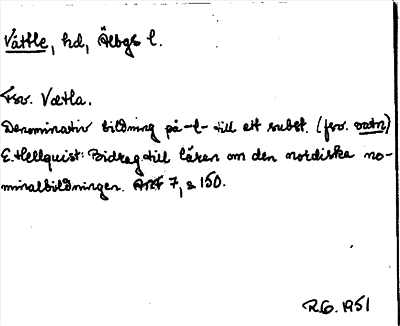 Vättle, hd, Älvbgs l.
Fsv. Vætla.
Denominativ bildning på -l- till ett subst. (fsv. vatn)
E. Hellquist: Bidrag till läran om den nordiska no-
minalbildningen. ANF 7, s 150.
R.G. 1951